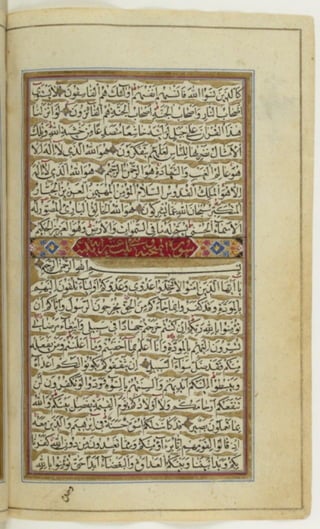 كَالَّذِينَ نَسُوا اللَّهَ فَأَنْسَاهُمْ أَنْفُسَهُمْ أُولَئِكَ هُمُ الْفَاسِقُونَ لَا يَسْتَوِي
أَصْحَابُ النَّارِ وَأَصْحَابُ الْجَنَّةِ أَصْحَابُ الْجَنَّةِ هُمُ الْفَائِزُونَ لَوْ أَنْزَلْنَا
هَذَا الْقُرْآنَ عَلَى جَبَلٍ لَرَأَيْتَهُ خَاشِعًا مُتَصَدِّعًا مِنْ خَشْيَةِ اللَّهِ وَتِلْكَ
الْأَمْثَالُ نَضْرِبُهَا لِلنَّاسِ لَعَلَّهُمْ يَتَفَكَّرُونَ هُوَ اللَّهُ الَّذِي لَا إِلَهَ إِلَّا
هُوَ عَالِمُ الْغَيْبِ وَالشَّهَادَةِ هُوَ الرَّحْمَنُ الرَّحِيمُ هُوَ اللَّهُ الَّذِي لَا إِلَهَ
إِلَّا هُوَ الْمَلِكُ الْقُدُّوسُ السَّلَامُ الْمُؤْمِنُ الْمُهَيْمِنُ الْعَزِيزُ الْجَبَّارُ
الْمُتَكَبِّرُ سُبْحَانَ اللَّهِ عَمَّا يُشْرِكُونَ هُوَ اللَّهُ الْخَالِقُ الْبَارِئُ الْمُصَوِّرُ لَهُ
الْأَسْمَاءُ الْحُسْنَى يُسَبِّحُ لَهُ مَا فِي السَّمَوَاتِ وَالْأَرْضِ وَهُوَ الْعَزِيزُ الْحَكِيمُ
سورة الممتحنة
بِسْمِ اللَّهِ الرَّحْمَنِ الرَّحِيمِ
يَا أَيُّهَا الَّذِينَ آمَنُوا لَا تَتَّخِذُوا عَدُوِّي وَعَدُوَّكُمْ أَوْلِيَاءَ تُلْقُونَ إِلَيْهِمْ
بِالْمَوَدَّةِ وَقَدْ كَفَرُوا بِمَا جَاءَكُمْ مِنَ الْحَقِّ يُخْرِجُونَ الرَّسُولَ وَإِيَّاكُمْ أَنْ
تُؤْمِنُوا بِاللَّهِ رَبِّكُمْ إِنْ كُنْتُمْ خَرَجْتُمْ جِهَادًا فِي سَبِيلِي وَابْتِغَاءَ مَرْضَاتِي
تُسِرُّونَ إِلَيْهِمْ بِالْمَوَدَّةِ وَأَنَا أَعْلَمُ بِمَا أَخْفَيْتُمْ وَمَا أَعْلَنْتُمْ وَمَنْ يَفْعَلْهُ
مِنْكُمْ فَقَدْ ضَلَّ سَوَاءَ السَّبِيلِ إِنْ يَثْقَفُوكُمْ يَكُونُوا لَكُمْ أَعْدَاءً
وَيَبْسُطُوا إِلَيْكُمْ أَيْدِيَهُمْ وَأَلْسِنَتَهُمْ بِالسُّوءِ وَوَدُّوا لَوْ تَكْفُرُونَ لَنْ
تَنْفَعَكُمْ أَرْحَامُكُمْ وَلَا أَوْلَادُكُمْ يَوْمَ الْقِيمَةِ يَفْصِلُ بَيْنَكُمْ وَاللَّهُ
بِمَا تَعْمَلُونَ بَصِيرٌ قَدْ كَانَتْ لَكُمْ أُسْوَةٌ حَسَنَةٌ فِي إِبْرَاهِيمَ وَالَّذِينَ مَعَهُ
إِذْ قَالُوا لِقَوْمِهِمْ إِنَّا بُرَآءُ مِنْكُمْ وَمِمَّا تَعْبُدُونَ مِنْ دُونِ اللَّهِ كَفَرْنَا
بِكُمْ وَبَدَا بَيْنَنَا وَبَيْنَكُمُ الْعَدَاوَةُ وَالْبَغْضَاءُ أَبَدًا حَتَّى تُؤْمِنُوا بِاللَّهِ
وحده